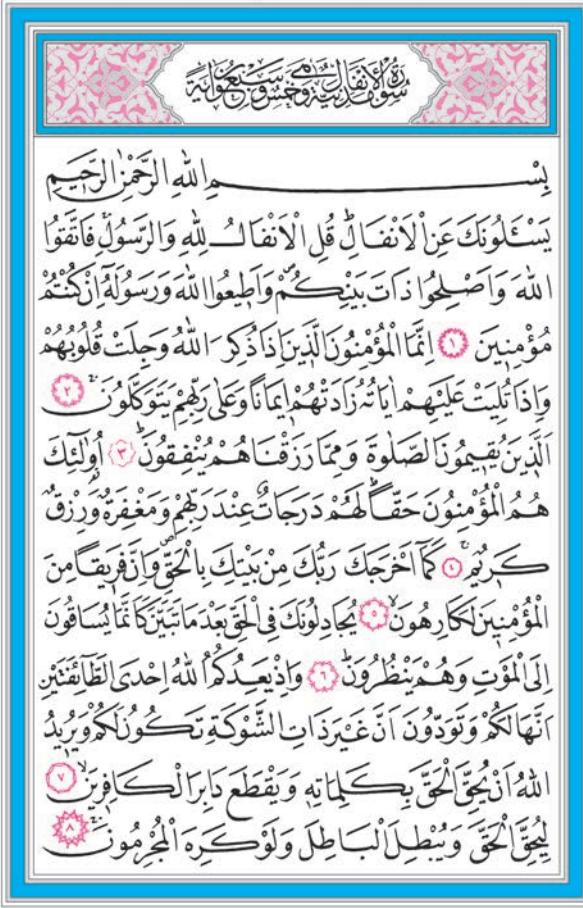 سورة الانفال مدنية وهي خمس وسبعون اية
بِسْمِ اللهِ الرَّحْمٰنِ الرَّحِيمِ
يَسْـَٔلُونَكَ عَنِ الْاَنْفَالِۜ قُلِ الْاَنْفَالُ لِلّٰهِ وَالرَّسُولِۚ فَاتَّقُوا
اللهَ وَاَصْلِحُوا ذَاتَ بَيْنِكُمْۖ وَاَطِيعُوا اللهَ وَرَسُولَهُٓ اِنْ كُنْتُمْ
مُؤْمِنِينَ ﴿١﴾ اِنَّمَا الْمُؤْمِنُونَ الَّذِينَ اِذَا ذُكِرَ اللهُ وَجِلَتْ قُلُوبُهُمْ
وَاِذَا تُلِيَتْ عَلَيْهِمْ اٰيَاتُهُ زَادَتْهُمْ اِيمَانًا وَعَلٰى رَبِّهِمْ يَتَوَكَّلُونَۚ ﴿٢﴾
اَلَّذِينَ يُقِيمُونَ الصَّلٰوةَ وَمِمَّا رَزَقْنَاهُمْ يُنْفِقُونَۜ ﴿٣﴾ اُو۬لٰٓئِكَ
هُمُ الْمُؤْمِنُونَ حَقًّاۜ لَهُمْ دَرَجَاتٌ عِنْدَ رَبِّهِمْ وَمَغْفِرَةٌ وَرِزْقٌ
كَرِيمٌۚ ﴿٤﴾ كَمَٓا اَخْرَجَكَ رَبُّكَ مِنْ بَيْتِكَ بِالْحَقِّۖ وَاِنَّ فَرِيقًا مِنَ
الْمُؤْمِنِينَ لَكَارِهُونَۙ ﴿٥﴾ يُجَادِلُونَكَ فِي الْحَقِّ بَعْدَ مَا تَبَيَّنَ كَاَنَّمَا يُسَاقُونَ
اِلَى الْمَوْتِ وَهُمْ يَنْظُرُونَۜ ﴿٦﴾ وَاِذْ يَعِدُكُمُ اللهُ اِحْدَى الطَّٓائِفَتَيْنِ
اَنَّهَا لَكُمْ وَتَوَدُّونَ اَنَّ غَيْرَ ذَاتِ الشَّوْكَةِ تَكُونُ لَكُمْ وَيُرِيدُ
اللهُ اَنْ يُحِقَّ الْحَقَّ بِكَلِمَاتِهِ وَيَقْطَعَ دَابِرَ الْكَافِرِينَۙ ﴿٧﴾
لِيُحِقَّ الْحَقَّ وَيُبْطِلَ الْبَاطِلَ وَلَوْ كَرِهَ الْمُجْرِمُونَۚ ﴿٨﴾